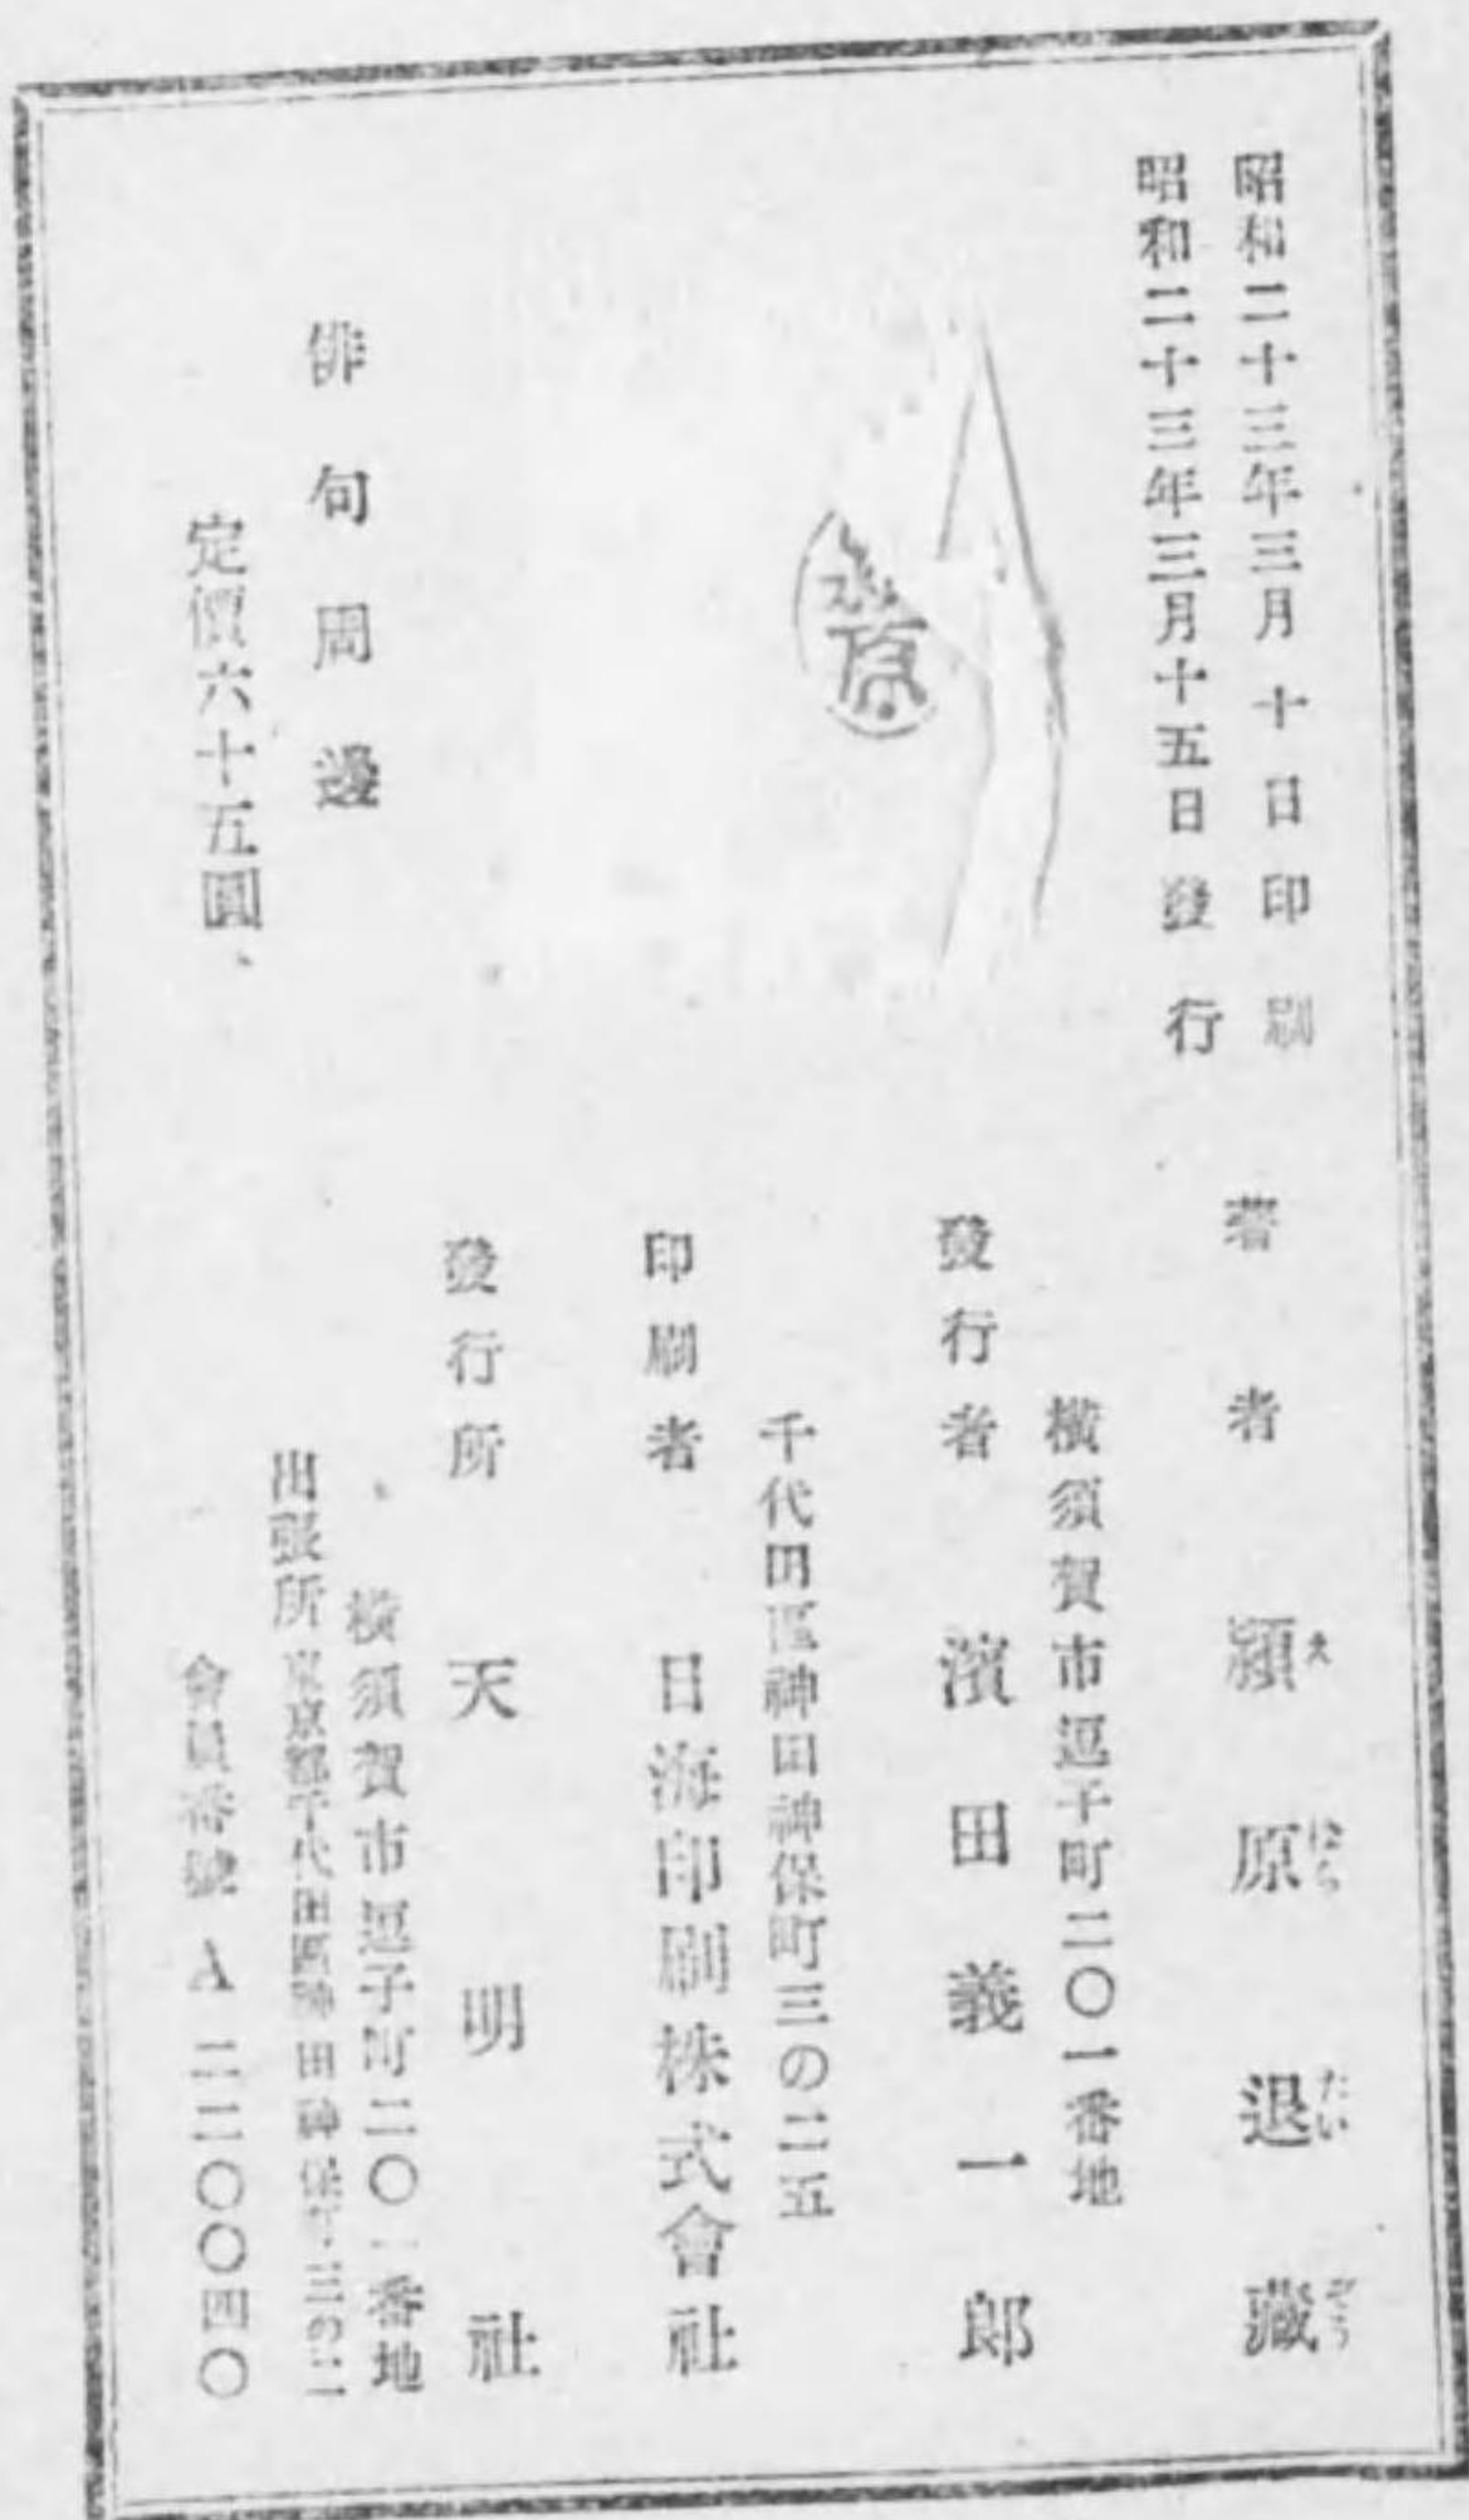 昭和二十三年三月十日印刷
昭和二十三年三月十五日發行
俳句周邊
定價六十五圓
著者 潁原退藏
え ばら たい ざう
橫須賀市逗子町二〇一番地
發行者 濱田義一郎
千代田區神田神保町三の二五
印刷者 日海印刷株式會社
發行所 天明社
橫須賀市逗子町二〇一番地
出張所 東京都千代田區神田神保町三の二
會員番號 A 二二〇〇四〇